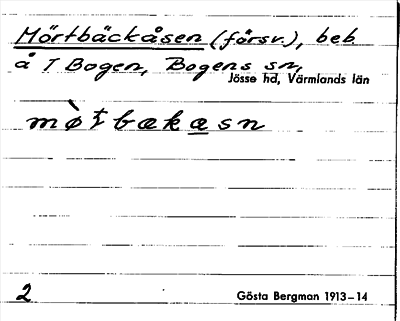 Mörtbäckåsen (försv.), beb.
å 7 Bogen, Bogens sn,
Jösse hd, Värmlands län
2
Gösta Bergman 1913–14